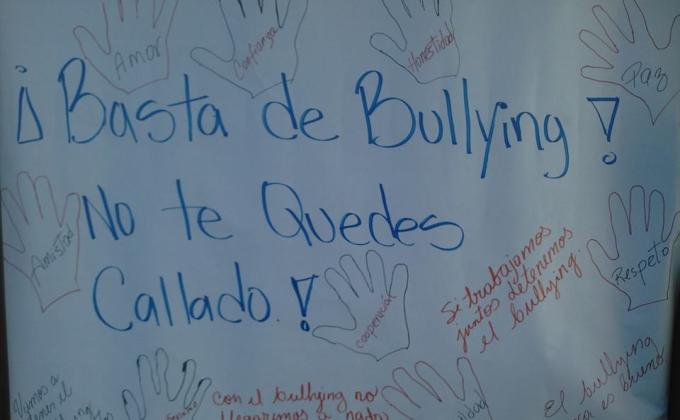 Amor
Confianza
Honestidad
Paz
¡Basta de Bullying!
Amistad
No te Quedes
Callado.!
cooperación
Respeto
Si trabajamos
juntos detenemos
el bullying.
Vamos a
el
con el bullying no
llegaremos a nada
El bullying
no es bueno